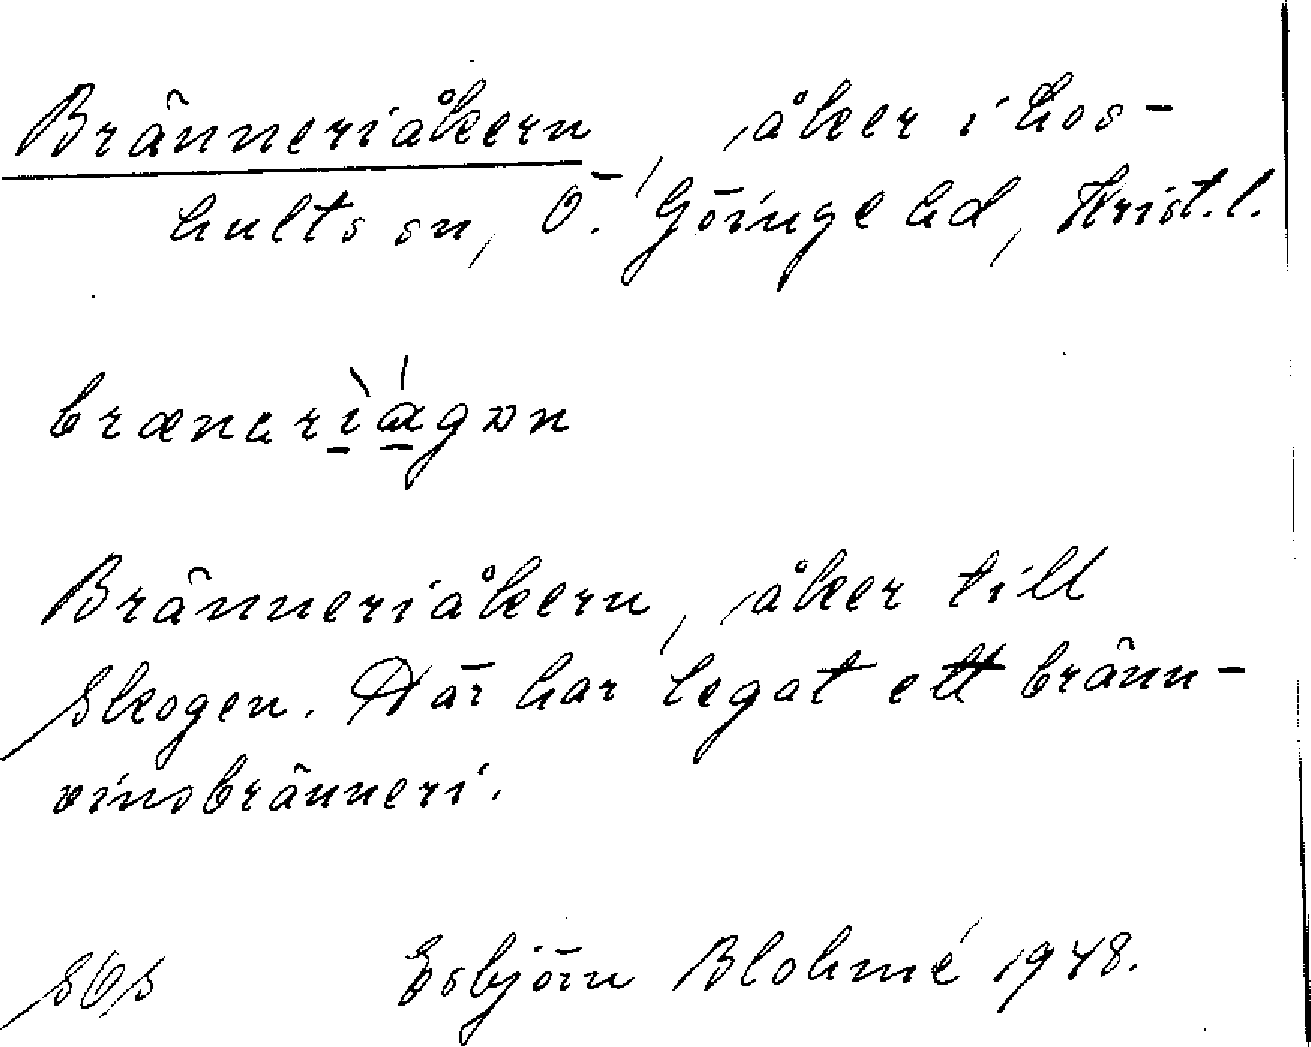 Bränneriåkern, åker i Los-
hults sn, Ö. Göinge hd, Krist.l.
Bränneriåkern, åker till
Skogen. Där har legat ett bränn-
vinsbränneri.
SOS Esbjörn Blohmé 1948.